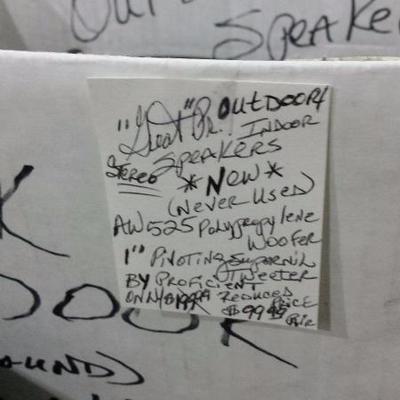 OUTD
SPEAKE
"Great" Pr. OUTDOOR/
INDOOR
STEREO SPEAKERS
*NEW*
(NEVER USED)
AW525 Polypropylene
WOOFER
1" Pivoting
Tweeter
BY PROFICIENT
ONLY REDUCED PRICE
$99 Pair
OOR
OUND)